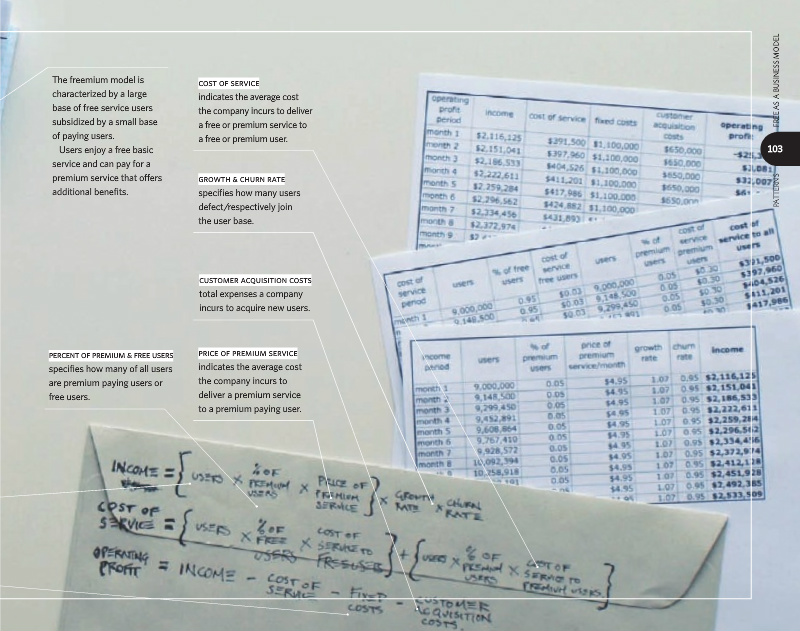 The freemium model is
characterized by a large
base of free service users
subsidized by a small base
of paying users.
Users enjoy a free basic
service and can pay for a
premium service that offers
additional benefits.
COST OF SERVICE
indicates the average cost
the company incurs to deliver
a free or premium service to
a free or premium user.
GROWTH & CHURN RATE
specifies how many users
defect/respectively join
the user base.
CUSTOMER ACQUISITION COSTS
total expenses a company
incurs to acquire new users.
PERCENT OF PREMIUM & FREE USERS
specifies how many of all users
are premium paying users or
free users.
PRICE OF PREMIUM SERVICE
indicates the average cost
the company incurs to
deliver a premium service
to a premium paying user.
FREE AS A BUSINESS MODEL
103
PATTERNS
operating profit period income cost of service fixed costs customer acquisition costs operating profit
month 1 $2,116,125 $391,500 $1,100,000 $650,000
month 2 $2,151,041 $397,960 $1,100,000 $650,000
month 3 $2,186,533 $404,526 $1,100,000 $650,000 $32,007
month 4 $2,222,611 $411,201 $1,100,000 $650,000
month 5 $2,259,284 $417,986 $1,100,000 $650,000
month 6 $2,296,562 $424,882 $1,100,000
month 7 $2,334,456 $431,893
month 8 $2,372,974
month 9
cost of service period users % of free users cost of service free users users % of premium users cost of service premium users cost of service to all users
month 1 9,000,000 0.95 $0.03 9,000,000 0.05 $0.30 $391,500
9,148,500 0.95 $0.03 9,148,500 0.05 $0.30 $397,960
9,299,450 $404,526
$411,201
$417,986
income period users % of premium users price of premium service/month growth rate churn rate income
month 1 9,000,000 0.05 $4.95 1.07 0.95 $2,116,125
month 2 9,148,500 0.05 $4.95 1.07 0.95 $2,151,041
month 3 9,299,450 0.05 $4.95 1.07 0.95 $2,186,533
month 4 9,452,891 0.05 $4.95 1.07 0.95 $2,222,611
month 5 9,608,864 0.05 $4.95 1.07 0.95 $2,259,284
month 6 9,767,410 0.05 $4.95 1.07 0.95 $2,296,562
month 7 9,928,572 0.05 $4.95 1.07 0.95 $2,334,456
month 8 10,092,394 0.05 $4.95 1.07 0.95 $2,372,974
10,258,918 0.05 $4.95 1.07 0.95 $2,412,128
0.05 $4.95 1.07 0.95 $2,451,928
$4.95 1.07 0.95 $2,492,385
1.07 0.95 $2,533,509
INCOME = { USERS × % OF PREMIUM USERS × PRICE OF PREMIUM SERVICE } × GROWTH RATE × CHURN RATE
COST OF SERVICE = { USERS × % OF FREE USERS × COST OF SERVICE TO FREE USERS } + { USERS × % OF PREMIUM USERS × COST OF SERVICE TO PREMIUM USERS }
OPERATING PROFIT = INCOME - COST OF SERVICE - FIXED COSTS - CUSTOMER ACQUISITION COSTS.